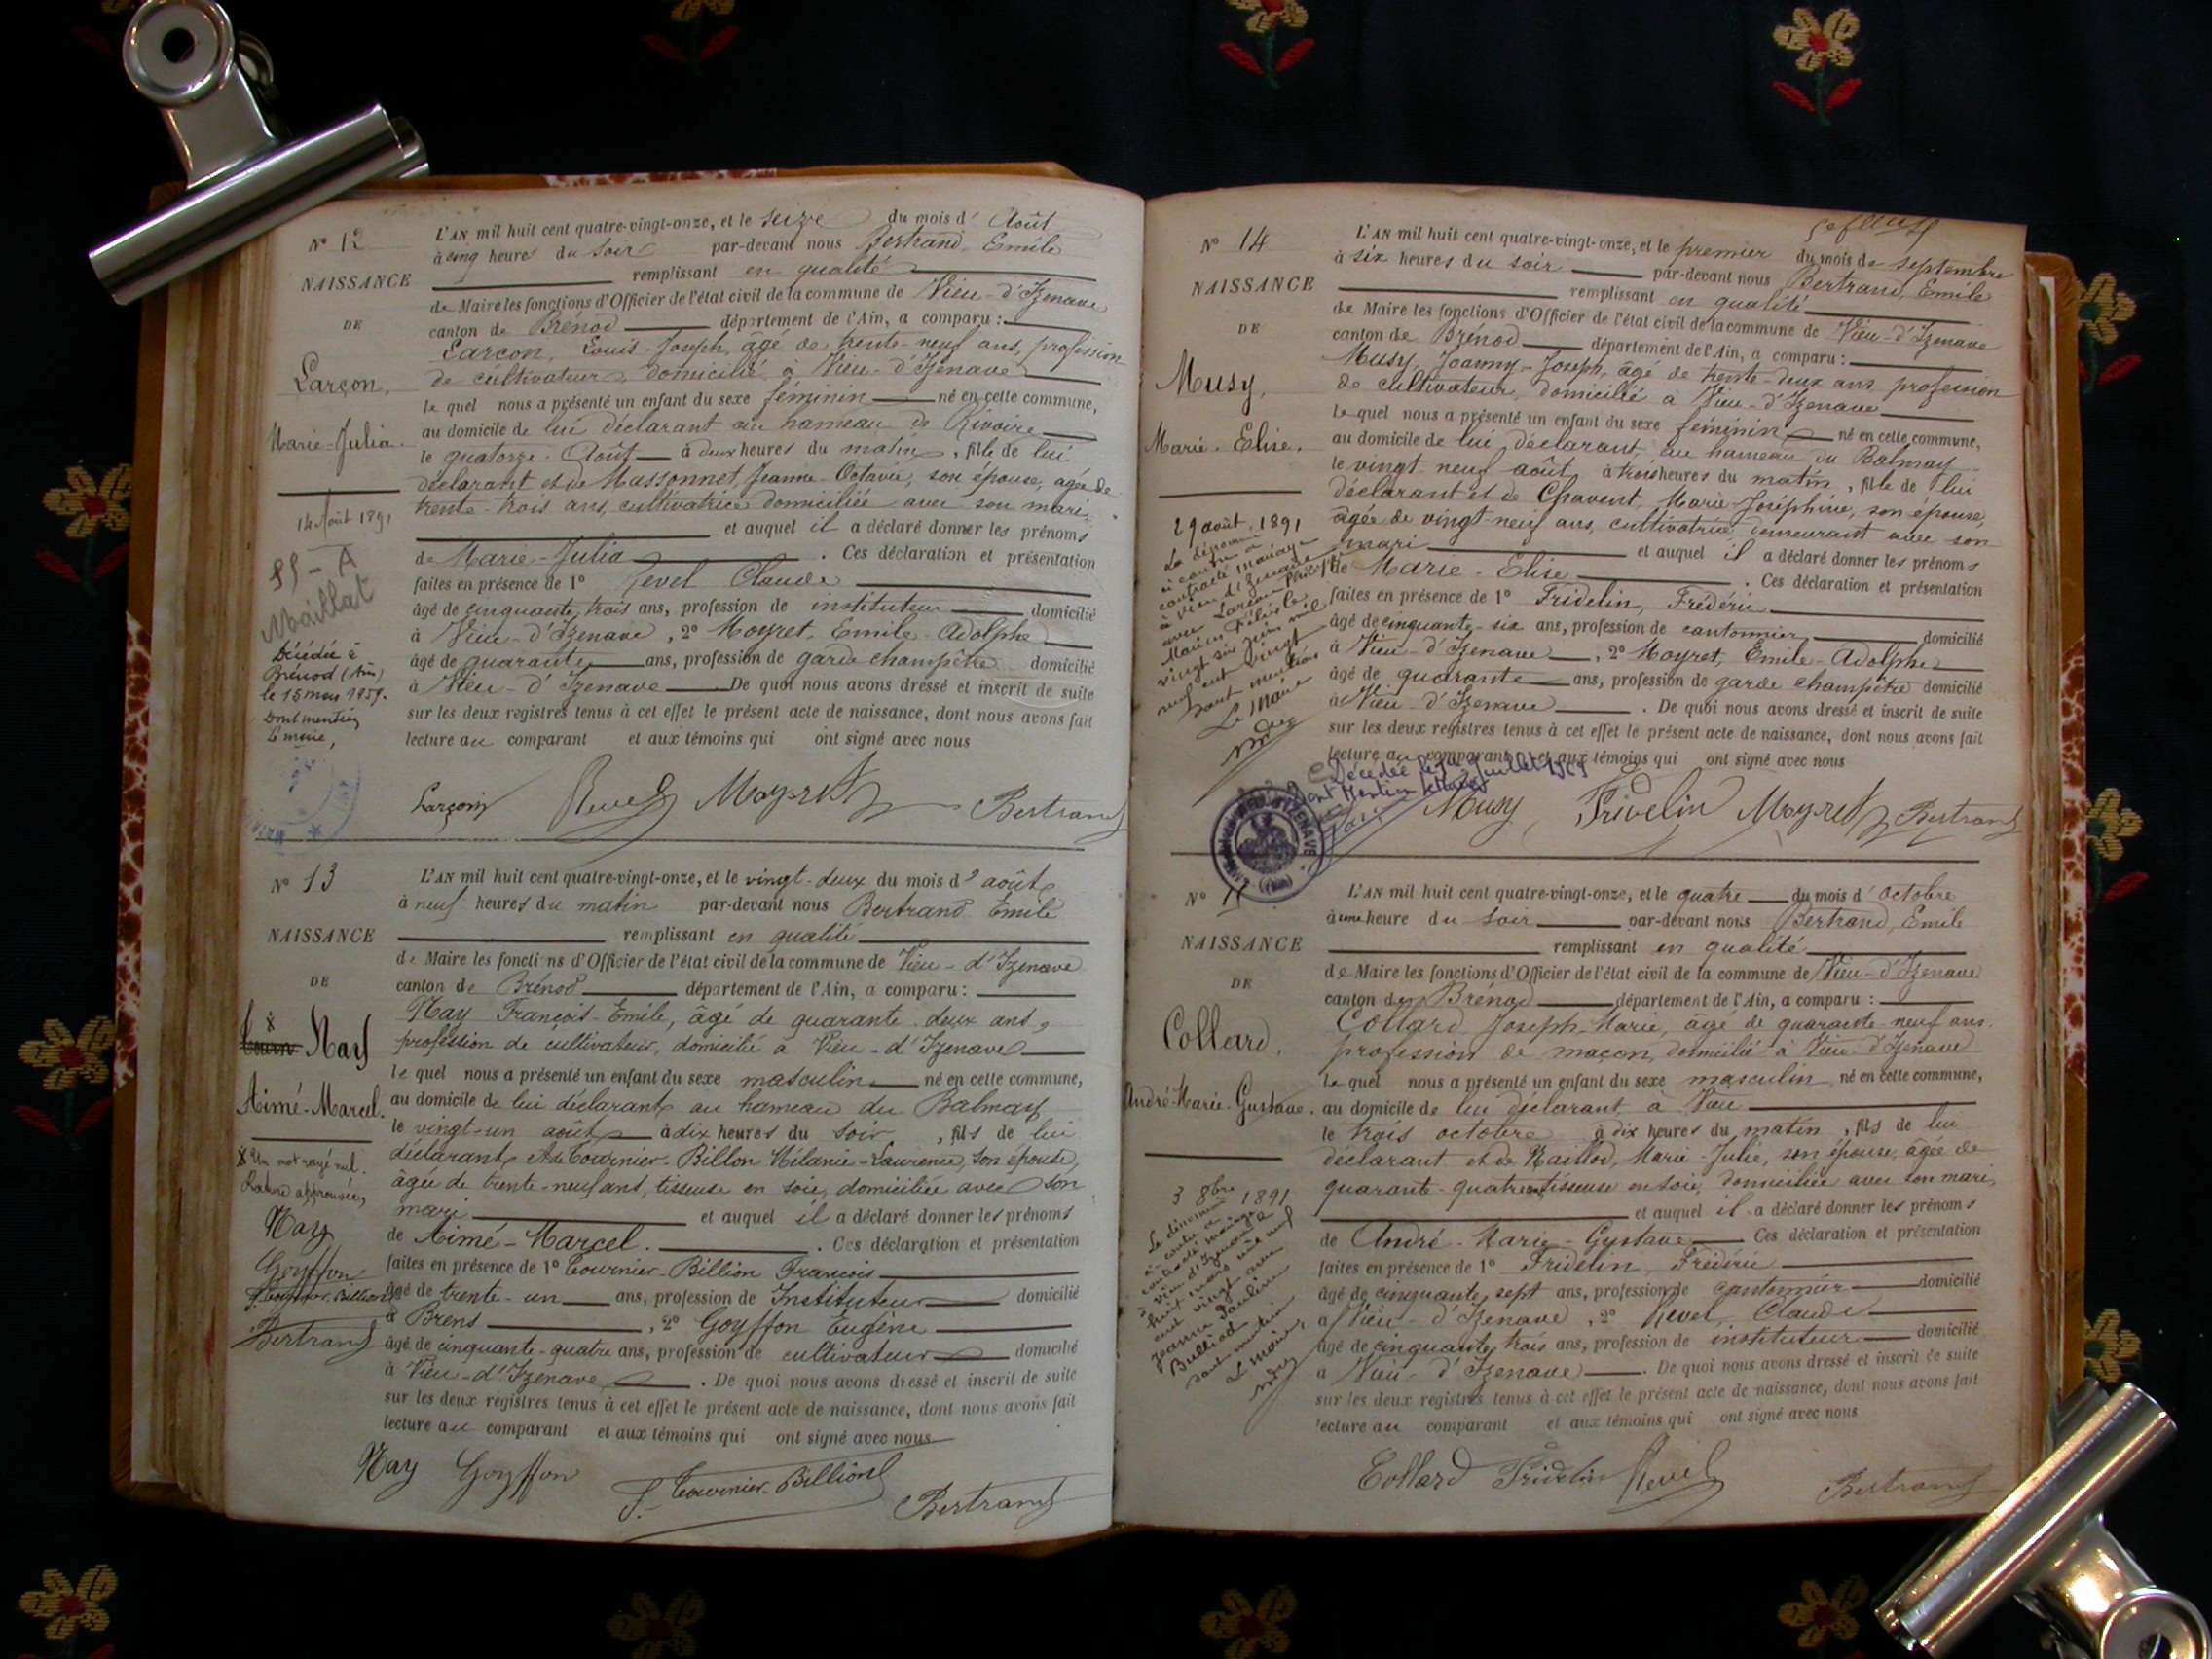 N° 12
NAISSANCE
DE
Larçon,
Marie-Julia.
14 Août 1891
Maillat
Décédée à
Brénod (Ain)
le 15 mars 1957.
Dont mention
Le maire,
L'AN mil huit cent quatre-vingt-onze, et le seize du mois d' Août
à cinq heures du soir par-devant nous Bertrand Emile
remplissant en qualité
de Maire les fonctions d'Officier de l'état civil de la commune de Vieu-d'Izenave
canton de Brénod département de l'Ain, a comparu :
Larçon, Louis-Joseph, âgé de trente-neuf ans, profession
de cultivateur, domicilié à Vieu-d'Izenave
le quel nous a présenté un enfant du sexe féminin né en cette commune,
au domicile de lui déclarant au hameau de Rivoire
le quatorze Août à deux heures du matin, fille de lui
déclarant et de Massonnet, Jeanne-Octavie, son épouse, âgée de
trente-trois ans, cultivatrice domiciliée avec son mari,
et auquel il a déclaré donner les prénoms
de Marie-Julia . Ces déclaration et présentation
faites en présence de 1° Revel Claude
âgé de cinquante trois ans, profession de instituteur domicilié
à Vieu-d'Izenave, 2° Moyret, Emile-Adolphe
âgé de quarante ans, profession de garde champêtre domicilié
à Vieu-d'Izenave De quoi nous avons dressé et inscrit de suite
sur les deux registres tenus à cet effet le présent acte de naissance, dont nous avons fait
lecture au comparant et aux témoins qui ont signé avec nous
Larçon Revel Moyret Bertrand
N° 13
NAISSANCE
DE
Nay
Aimé-Marcel.
Un mot rayé nul.
Rature approuvée,
Nay
Goyffon
F. Tournier-Billion
Bertrand
L'AN mil huit cent quatre-vingt-onze, et le vingt-deux du mois d' août
à neuf heures du matin par-devant nous Bertrand Emile
remplissant en qualité
de Maire les fonctions d'Officier de l'état civil de la commune de Vieu-d'Izenave
canton de Brénod département de l'Ain, a comparu :
Nay François-Emile, âgé de quarante-deux ans,
profession de cultivateur, domicilié à Vieu-d'Izenave
le quel nous a présenté un enfant du sexe masculin né en cette commune,
au domicile de lui déclarant au hameau du Balmay
le vingt-un août à dix heures du soir, fils de lui
déclarant et de Tournier-Billon Mélanie-Laurence, son épouse,
âgée de trente-neuf ans, tisseuse en soie, domiciliée avec son
mari et auquel il a déclaré donner les prénoms
de Aimé-Marcel. . Ces déclaration et présentation
faites en présence de 1° Tournier-Billion François
âgé de trente-un ans, profession de Instituteur domicilié
à Brens, 2° Goyffon Eugène
âgé de cinquante-quatre ans, profession de cultivateur domicilié
à Vieu-d'Izenave . De quoi nous avons dressé et inscrit de suite
sur les deux registres tenus à cet effet le présent acte de naissance, dont nous avons fait
lecture au comparant et aux témoins qui ont signé avec nous
Nay Goyffon F. Tournier-Billion Bertrand
N° 14
NAISSANCE
DE
Musy,
Marie-Elise.
29 août 1891
La dénommée
ci contre a
contracté mariage
à Vieu d'Izenave
avec Larçon
vingt six juin mil
neuf cent vingt
dont mention
Le Maire
L'AN mil huit cent quatre-vingt-onze, et le premier du mois de septembre
à six heures du soir par-devant nous Bertrand, Emile
remplissant en qualité
de Maire les fonctions d'Officier de l'état civil de la commune de Vieu-d'Izenave
canton de Brénod département de l'Ain, a comparu :
Musy, Joanny-Joseph, âgé de trente-deux ans profession
de cultivateur, domicilié à Vieu-d'Izenave
le quel nous a présenté un enfant du sexe féminin né en cette commune,
au domicile de lui déclarant au hameau du Balmay
le vingt-neuf août à trois heures du matin, fille de lui
déclarant et de Chavent, Marie-Joséphine, son épouse,
âgée de vingt-neuf ans, cultivatrice, demeurant avec son
mari et auquel il a déclaré donner les prénoms
de Marie-Elise . Ces déclaration et présentation
faites en présence de 1° Fridelin, Frédéric
âgé de cinquante-six ans, profession de cantonnier domicilié
à Vieu-d'Izenave, 2° Moyret, Emile-Adolphe
âgé de quarante ans, profession de garde champêtre domicilié
à Vieu-d'Izenave . De quoi nous avons dressé et inscrit de suite
sur les deux registres tenus à cet effet le présent acte de naissance, dont nous avons fait
lecture au comparant et aux témoins qui ont signé avec nous
Décédée
Juillet
Dont Mention
Musy Fridelin Moyret Bertrand
N°
NAISSANCE
DE
Collard,
André-Marie-Gustave.
3 8bre 1891
Le dénommé
ci contre a
contracté mariage
à Vieu d'Izenave le
huit mars mil neuf
cent vingt avec
Jeanne Pauline
Bulliod
dont mention
Le Maire,
L'AN mil huit cent quatre-vingt-onze, et le quatre du mois d' octobre
à une heure du soir par-devant nous Bertrand, Emile
remplissant en qualité
de Maire les fonctions d'Officier de l'état civil de la commune de Vieu-d'Izenave
canton de Brénod département de l'Ain, a comparu :
Collard Joseph-Marie, âgé de quarante-neuf ans,
profession de maçon, domicilié à Vieu-d'Izenave
le quel nous a présenté un enfant du sexe masculin né en cette commune,
au domicile de lui déclarant à Vieu
le trois octobre à dix heures du matin, fils de lui
déclarant et de Maillod, Marie-Julie, son épouse, âgée de
quarante-quatre ans tisseuse en soie, domiciliée avec son mari,
et auquel il a déclaré donner les prénoms
de André-Marie-Gustave Ces déclaration et présentation
faites en présence de 1° Fridelin, Frédéric
âgé de cinquante sept ans, profession de cantonnier domicilié
à Vieu-d'Izenave, 2° Revel, Claude
âgé de cinquante trois ans, profession de instituteur domicilié
à Vieu-d'Izenave . De quoi nous avons dressé et inscrit de suite
sur les deux registres tenus à cet effet le présent acte de naissance, dont nous avons fait
lecture au comparant et aux témoins qui ont signé avec nous
Collard Fridelin Revel Bertrand